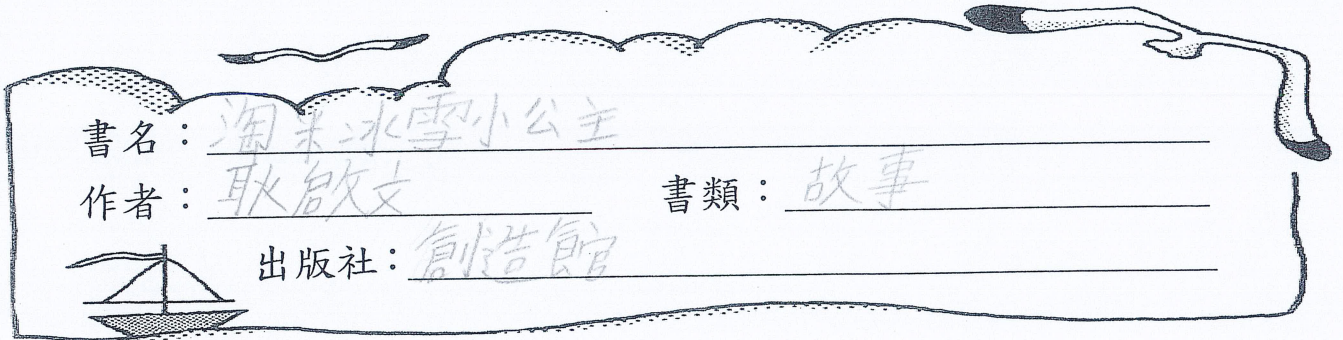 書名：淘米冰雪小公主
作者：耿啟文 書類：故事
出版社：創造館